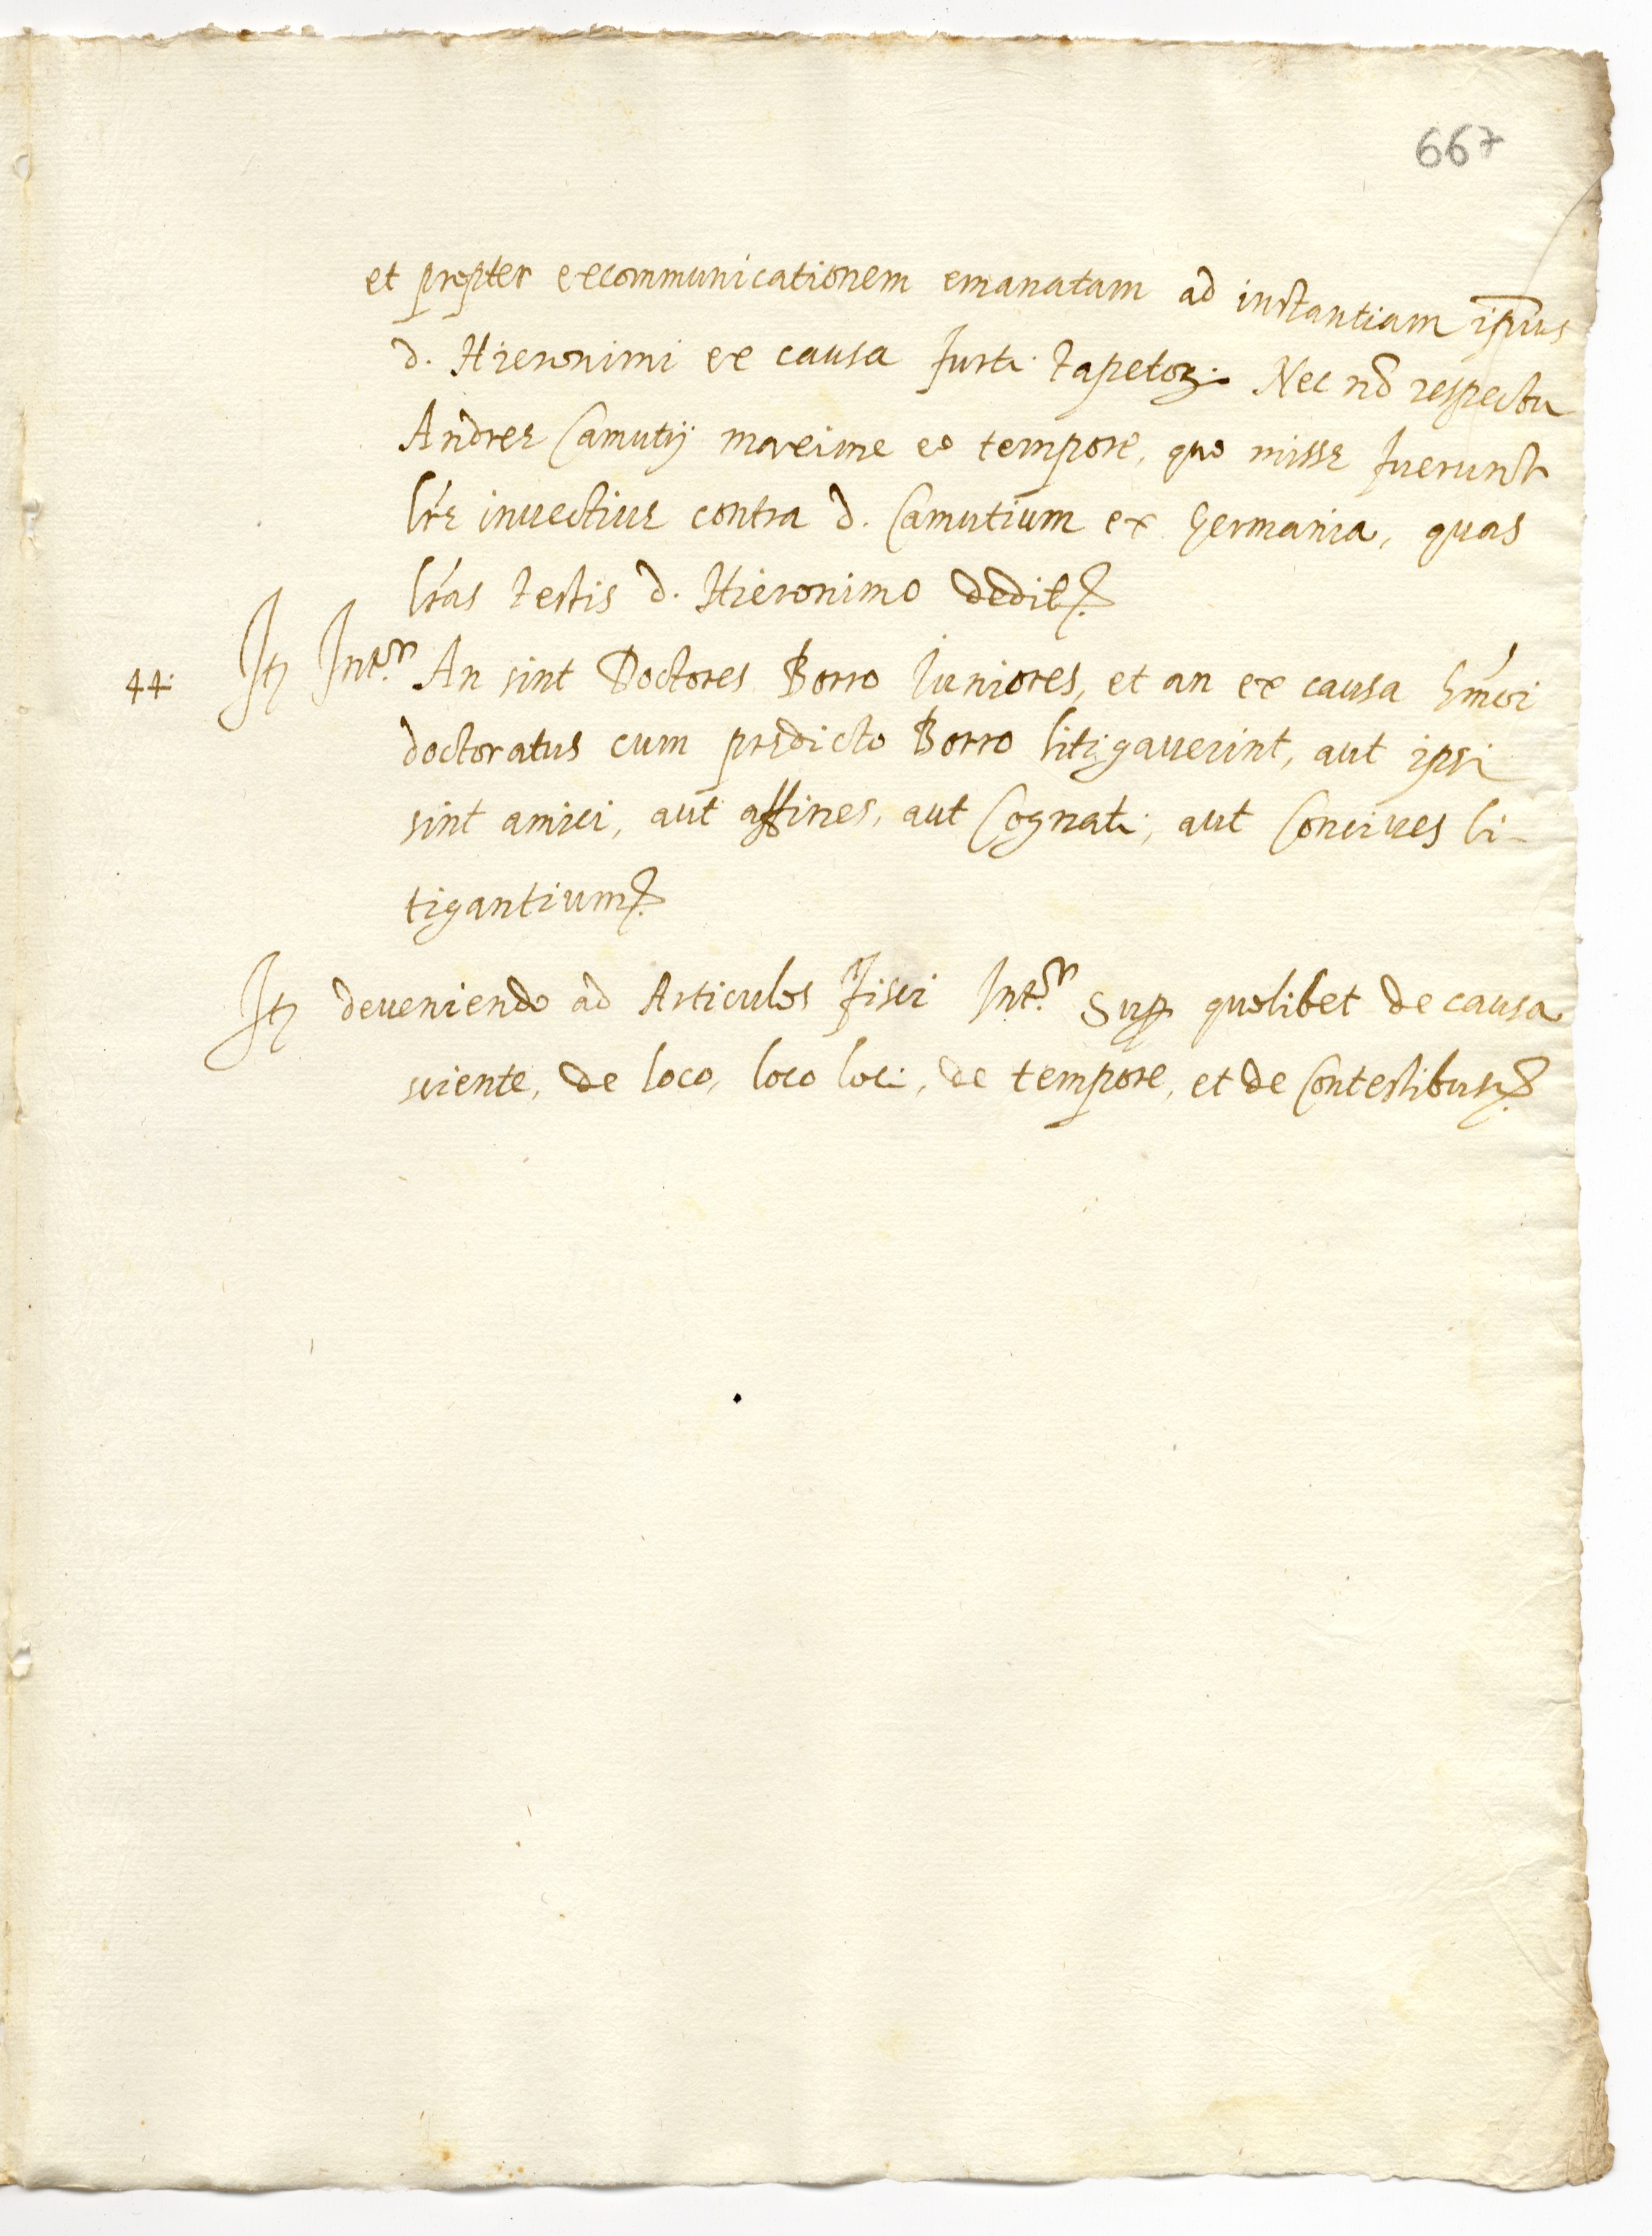 667
et propter excommunicationem emanatam ad instantiam ip̃ius
d. Hieronimi ex causa furti tapetoꝝ. Nec nõ respectu
Andreę Camutij maxime eo tempore, quo missę fuerunt
lr̃ę inuectiuę contra d. Camutium ex Germania, quas
lr̃as testis d. Hieronimo dedit
44. Itȝ Int.r An sint Doctores Borro Iuniores, et an ex causa hmõi
doctoratus cum prędicto Borro litigauerint, aut ipsi
sint amici, aut affines, aut Cognati, aut Conciues li-
tigantium
Itȝ deueniendo ad Articulos Fisci Int.r Suꝑ quolibet de causa
sciente, de loco, loco loci, de tempore, et de Contestibus